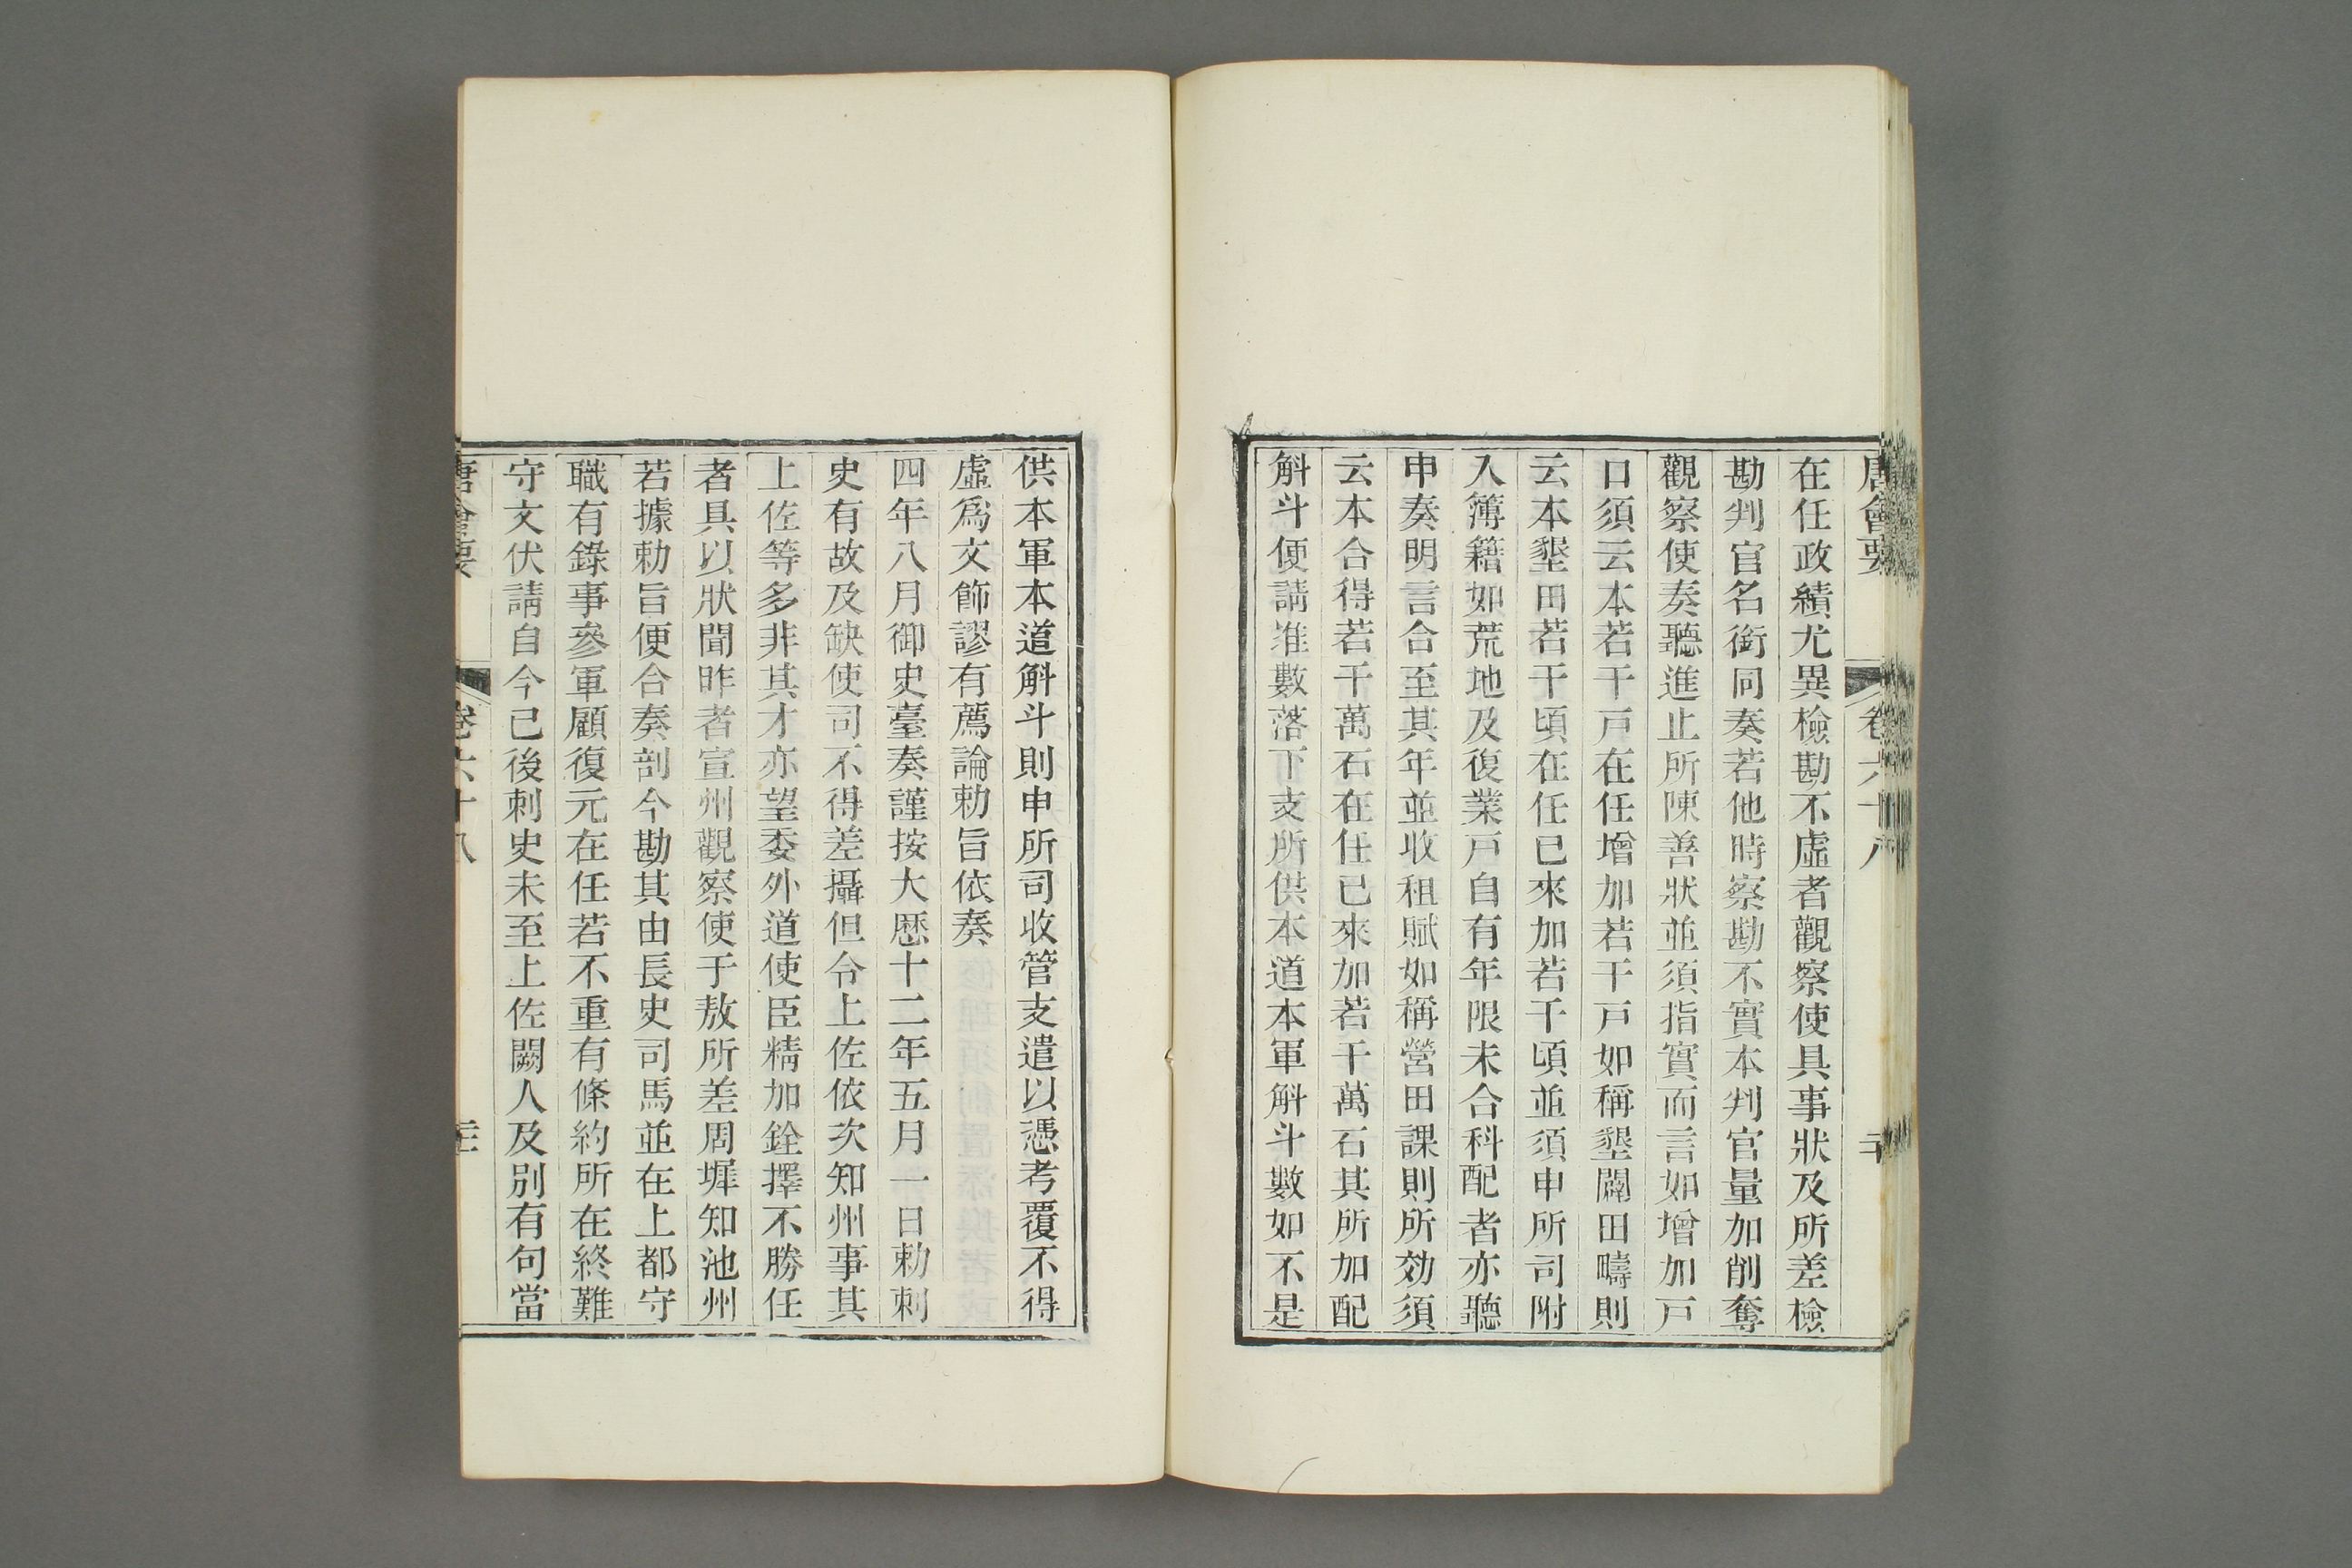 唐會要 卷六十八 二十
在任政績尤異檢勘不虛者觀察使具事狀及所差檢
勘判官名銜同奏若他時察勘不實本判官量加削奪
觀察使奏聽進止所陳善狀並須指實而言如增加戸
口須云本若干戸在任增加若干戸如稱墾闢田疇則
云本墾田若干頃在任已來加若干頃並須申所司附
入簿籍如荒地及復業戸自有年限未合科配者亦聽
申奏明言合至其年並收租賦如稱營田課則所効須
云本合得若干萬石在任已來加若干萬石其所加配
斛斗便請准數落下支所供本道本軍斛斗數如不是
供本軍本道斛斗則申所司收管支遣以憑考覆不得
虛爲文飾謬有薦論勅旨依奏
四年八月御史臺奏謹按大厯十二年五月一日勅刺
史有故及缺使司不得差攝但令上佐依次知州事其
上佐等多非其才亦望委外道使臣精加銓擇不勝任
者具以狀聞昨者宣州觀察使于敖所差周墀知池州
若據勅旨便合奏剖今勘其由長史司馬並在上都守
職有錄事參軍顧復元在任若不重有條約所在終難
守文伏請自今已後刺史未至上佐闕人及別有句當
唐會要 卷六十八